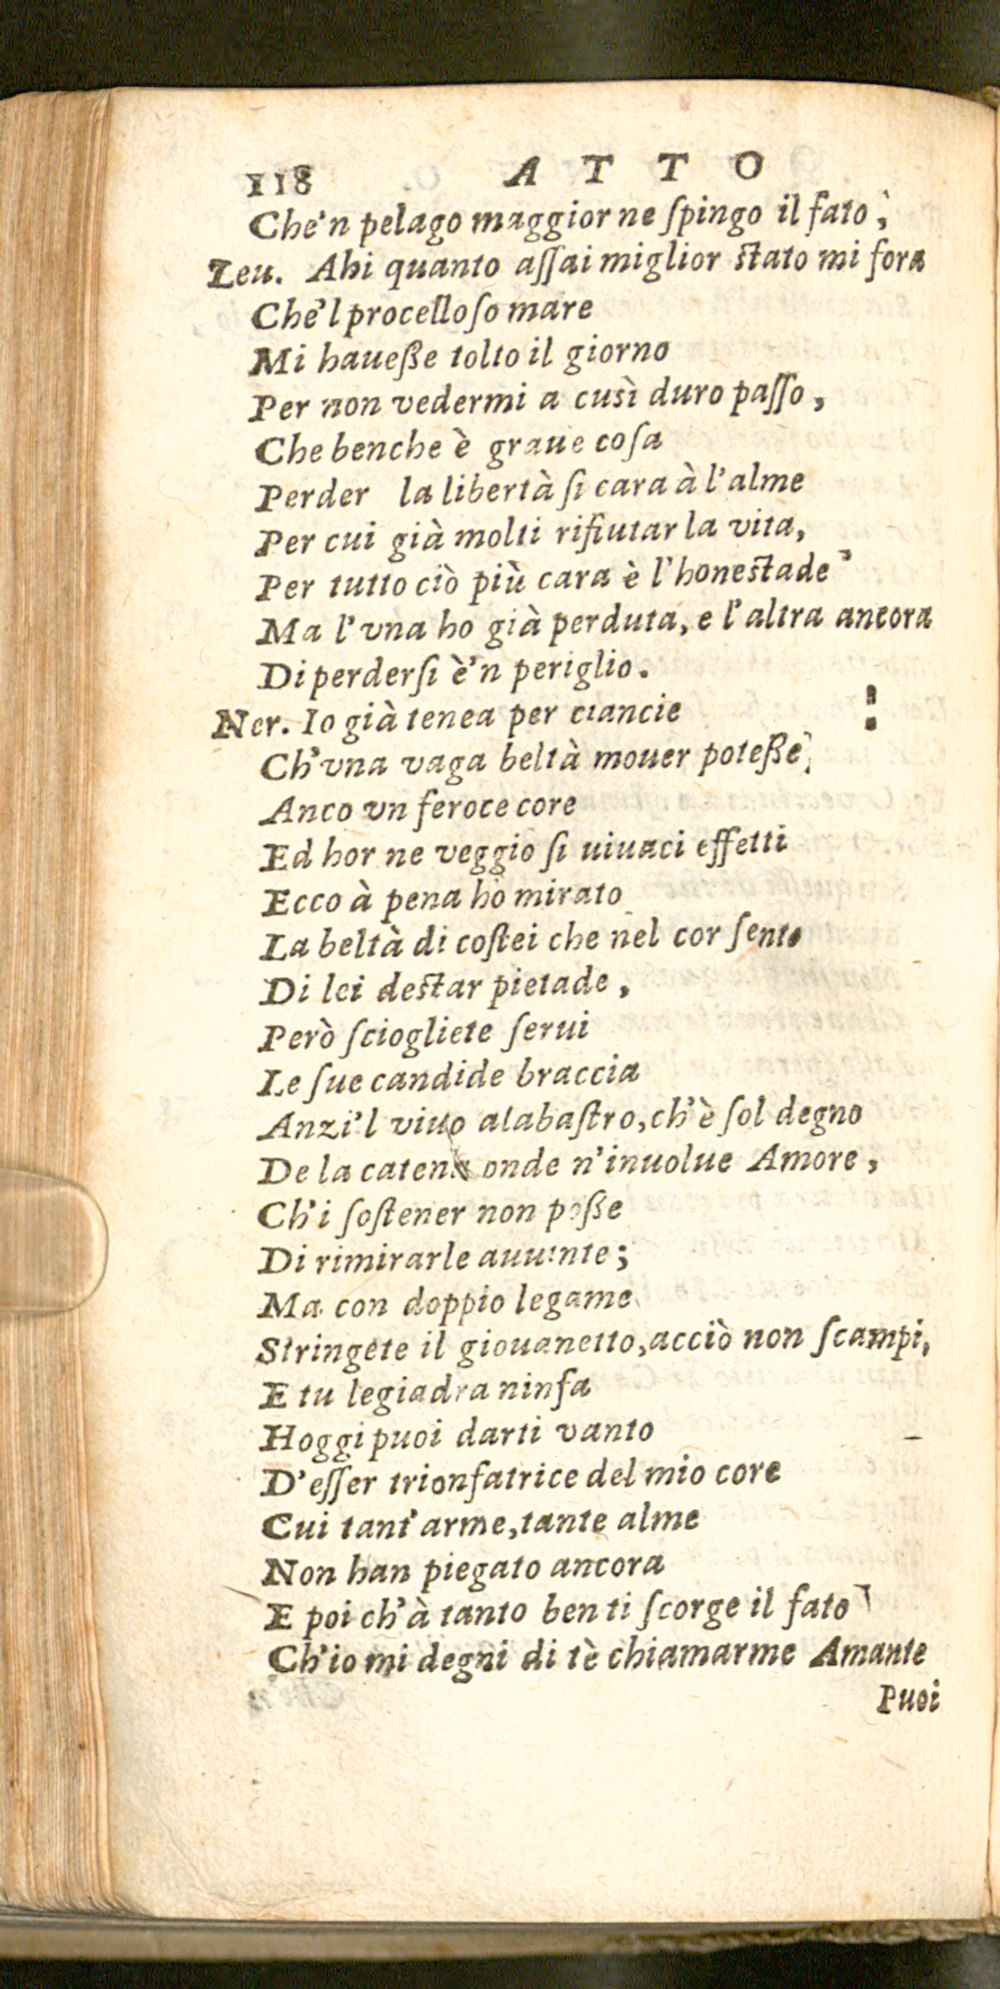 118 ATTO
Che'n pelago maggior ne ſpingo il fato,
Leu. Ahi quanto aſſai miglior ſtato mi fora
Che'l procelloſo mare
Mi haueße tolto il giorno
Per non vedermi a cusì duro paſſo,
Che benche è graue coſa
Perder la libertà ſi cara à l'alme
Per cui già molti rifiutar la vita,
Per tutto ciò più cara è l'honeſtade
Ma l'vna ho già perduta, e l'altra ancora
Di perderſi è'n periglio.
Ner. Io già tenea per ciancie
Ch'vna vaga beltà mouer poteße,
Anco vn feroce core
Ed hor ne veggio ſi uiuaci effetti
Ecco à pena hò mirato
La beltà di coſtei che nel cor ſento
Di lei deſtar pietade,
Però ſciogliete ſerui
Le ſue candide braccia
Anzi'l viuo alabaſtro, ch'è ſol degno
De la catena onde n'inuolue Amore,
Ch'i ſoſtener non poße
Di rimirarle auuinte;
Ma con doppio legame
Stringete il giouanetto, acciò non ſcampi,
E tu legiadra ninfa
Hoggi puoi darti vanto
D'eſſer trionfatrice del mio core
Cui tant'arme, tante alme
Non han piegato ancora
E poi ch'à tanto ben ti ſcorge il fato
Ch'io mi degni di tè chiamarme Amante
Puoi